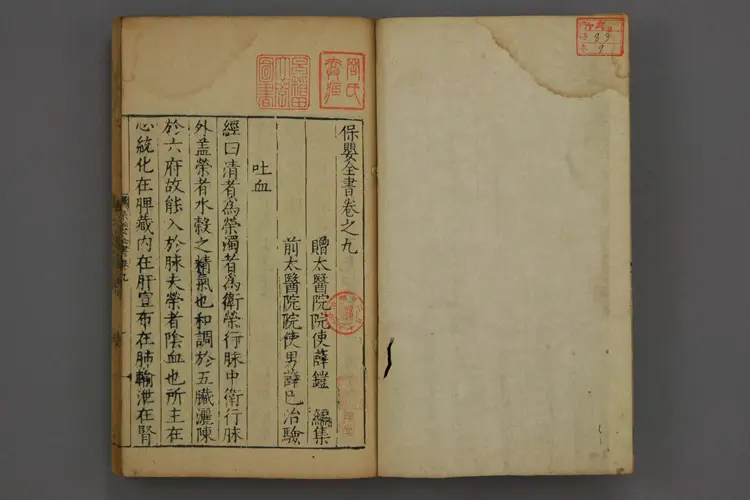 保嬰全書卷之九
贈太醫院院使薛鎧 編集
前太醫院院使男薛已治驗
吐血
經曰清者為榮濁者為衛榮行脉中衛行脉
外盖榮者水穀之精氣也和調於五臟灑陳
於六府故能入於脉夫榮者陰血也所主在
心統化在脾藏内在肝宣布在肺輸泄在腎